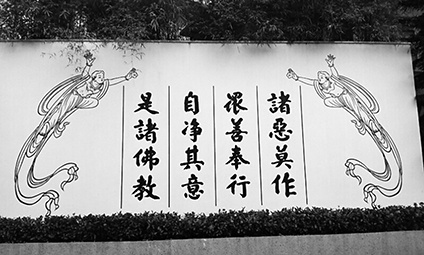 諸惡莫作
眾善奉行
自净其意
是諸佛教